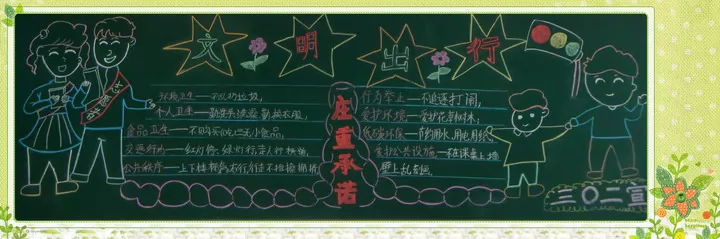 文明出行
环境卫生——不乱扔垃圾,
个人卫生——勤洗头洗澡 勤换衣服,
食品卫生——不购买吃三无小食品,
交通行为——红灯停、绿灯行、
公共秩序——上下楼靠右行
庄重承诺
行为举止——不追逐打闹,
爱护环境——爱护花草树木,
低碳环保——节约用水、用电、用纸,
爱护公共设施——在课桌上墙
壁上乱
三〇二宣